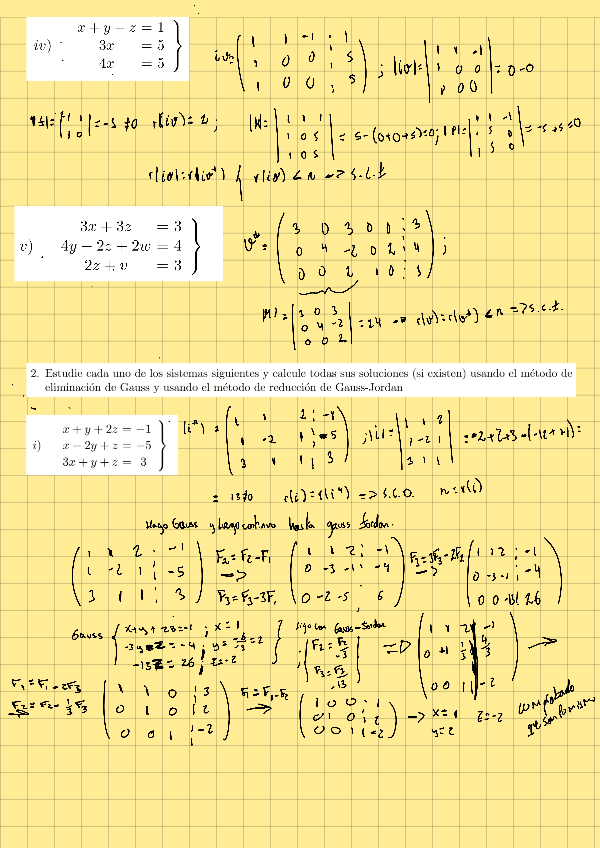 iv) x + y − z = 1
3x = 5
4x = 5
|M|= | 1 1 1 | 1 0 5 | 1 0 5 | = 5-(0+0+5)=0;
r(iv)=r(iv*) r(iv) < n => S.C.I
v) 3x + 3z = 3
4y − 2z + 2w = 4
2z + v = 3
v* = ( 3 0 3 0 0 : 3
0 4 -2 0 2 : 4
0 0 2 1 0 : 3 ) ;
|M| = | 3 0 3 | 0 4 -2 | 0 0 2 | = 24 => r(v)=r(v*) < n => S.C.I.
2. Estudie cada uno de los sistemas siguientes y calcule todas sus soluciones (si existen) usando el método de
eliminación de Gauss y usando el método de reducción de Gauss-Jordan
i) x + y + 2z = −1
x − 2y + z = −5
3x + y + z = 3
= 13≠0 r(i)=r(i*) => S.C.D. n=r(i)
Hago Gauss y luego continuo hasta gauss Jordan.
( 1 1 2 : -1
1 -2 1 : -5
3 1 1 : 3 )
F2 = F2-F1
F3=F3-3F1
( 1 1 2 : -1
0 -3 -1 : -4
0 -2 -5 : 6 )
F3=3F3-2F2
( 1 1 2 : -1
0 -3 -1 : -4
0 0 -13 : 26 )
Gauss { x+y+2z=-1 ; x=1
-13z = 26 ; z=-2
Sigo con Gauss-Jordan
F2 = F2/-3
F3 = F3/-13
F1 = F1-2F3
F2 = F2-1/3 F3
( 1 1 0 : 3
0 1 0 : 2
0 0 1 : -2 )
F1=F1-F2
( 1 0 0 : 1
0 1 0 : 2
0 0 1 : -2 )
-> x=1 z=-2
y=2
comprobado
que son lo mismo